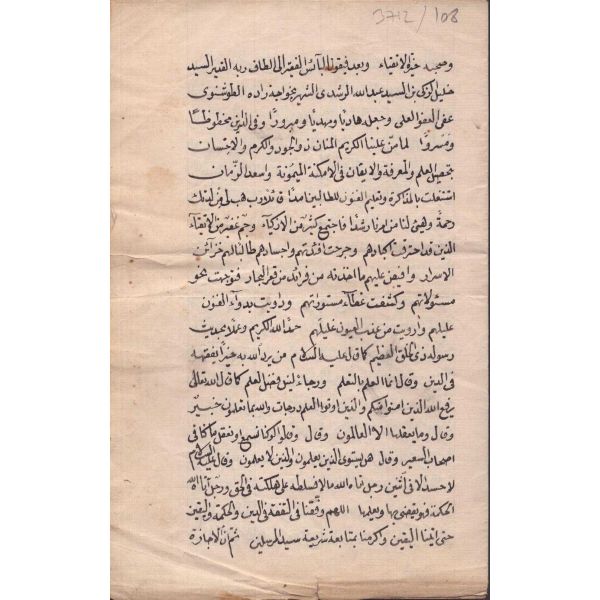 3712/108
وصحبه خيرة الاتقياء وبعد فيقول البائس الفقير الى الطاف ربه القدير السيد
خليل الزكى بن السيد عبد الله المرشدى الشهير بخواجه زاده الطوسنوى
عفى العفو العلى وجعله هاديا ومهديا ومبرورا وفى الدارين محظوظا
ومسرورا لما من علينا الكريم المنان ذو الجود والكرم والاحسان
بتحصيل العلم والمعرفة والايقان فى الامكنة الميمونة واسعد الزمان
اشتغلت بالمذاكرة وتعليم الفنون للطالبين قائلا رب هب لى من لدنك
رحمة وهيئ لنا من امرنا رشدا فاجتمع كثير من الاذكياء وجم غفير من الاتقياء
الذين قد احترقت اكبادهم وجرحت افئدتهم واجسادهم طالبا لهم خزائن
الاسرار وافيض عليهم ما اخذته من فرائد من قعر البحار فتوجهت نحو
مسئولاتهم وكشفت غطاء مستوراتهم وداويت بدواء الفنون
عليلهم وارويت من عذب العيون غليلهم حمدا لله الكريم وعملا بحديث
رسوله ذى الخلق العظيم كما قال عليه السلام من يرد الله به خيرا يفقهه
فى الدين وقال انما العلم بالتعلم ورجاء لنيل فضل العلم كما قال الله تعالى
يرفع الله الذين امنوا منكم والذين اوتوا العلم درجات والله بما تعملون خبير
وقال وما يعقلها الا العالمون وقال وقالوا لو كنا نسمع او نعقل ما كنا فى
اصحاب السعير وقال هل يستوى الذين يعلمون والذين لا يعلمون وقال عليه السلام
لا حسد الا فى اثنتين رجل اتاه الله مالا فسلطه على هلكته فى الحق ورجل اتاه الله
الحكمة فهو يقضى بها ويعلمها اللهم وفقنا فى التفقه فى الدين والحكمة واليقين
حتى اتينا اليقين واكرمنا بمتابعة شريعة سيد المرسلين ثم ان الاجازة